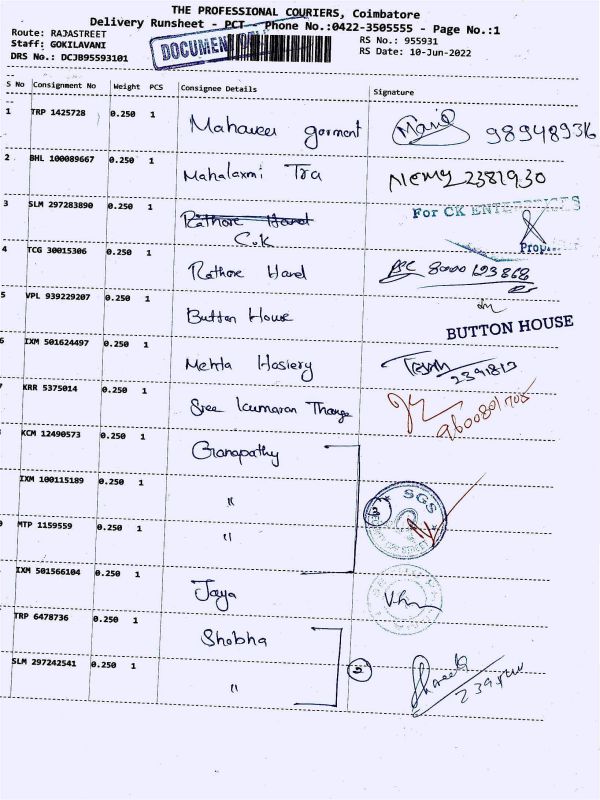 THE PROFESSIONAL COURIERS, Coimbatore
Delivery Runsheet - PCT - Phone No.:0422-3505555 - Page No.:1
Route: RAJASTREET RS No.: 955931
Staff: GOKILAVANI RS Date: 10-Jun-2022
DRS No.: DCJB95593101
DOCUMEN
S No Consignment No Weight PCS Consignee Details Signature
1 TRP 1425728 0.250 1 Mahaveer garment 989489316
2 BHL 100089667 0.250 1 Mahalaxmi Tra 2381930
3 SLM 297283890 0.250 1 Rathore Hand
C.K
For CK ENTERPRISES
Prop
4 TCG 30015306 0.250 1 Rathore Hand 8000193868
5 VPL 939229207 0.250 1 Button House BUTTON HOUSE
6 IXM 501624497 0.250 1 Mehta Hosiery
KRR 5375014 0.250 1 Sree Kumaran Thanga 9600801705
KCM 12490573 0.250 1 Ganapathy
IXM 100115189 0.250 1 "
SGS
3
MTP 1159559 0.250 1 "
IXM 501566104 0.250 1 Jaya
TRP 6478736 0.250 1 Shobha
SLM 297242541 0.250 1 " 2